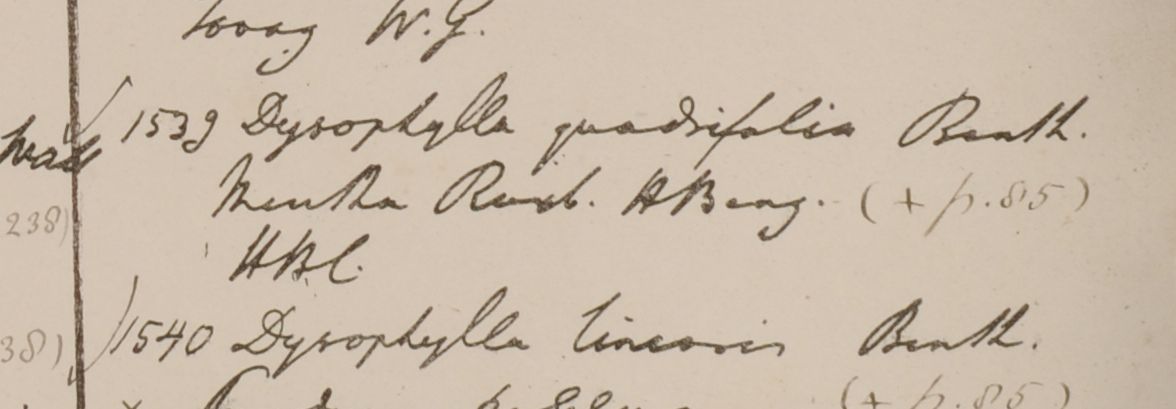 Tovay W.G.
Wall 1539 Dysophylla quadrifolia Benth.
Mentha Roxb. HBeng. (+ p.85)
238)
HBC.
38) 1540 Dysophylla linearis Benth.
(+ p.85)